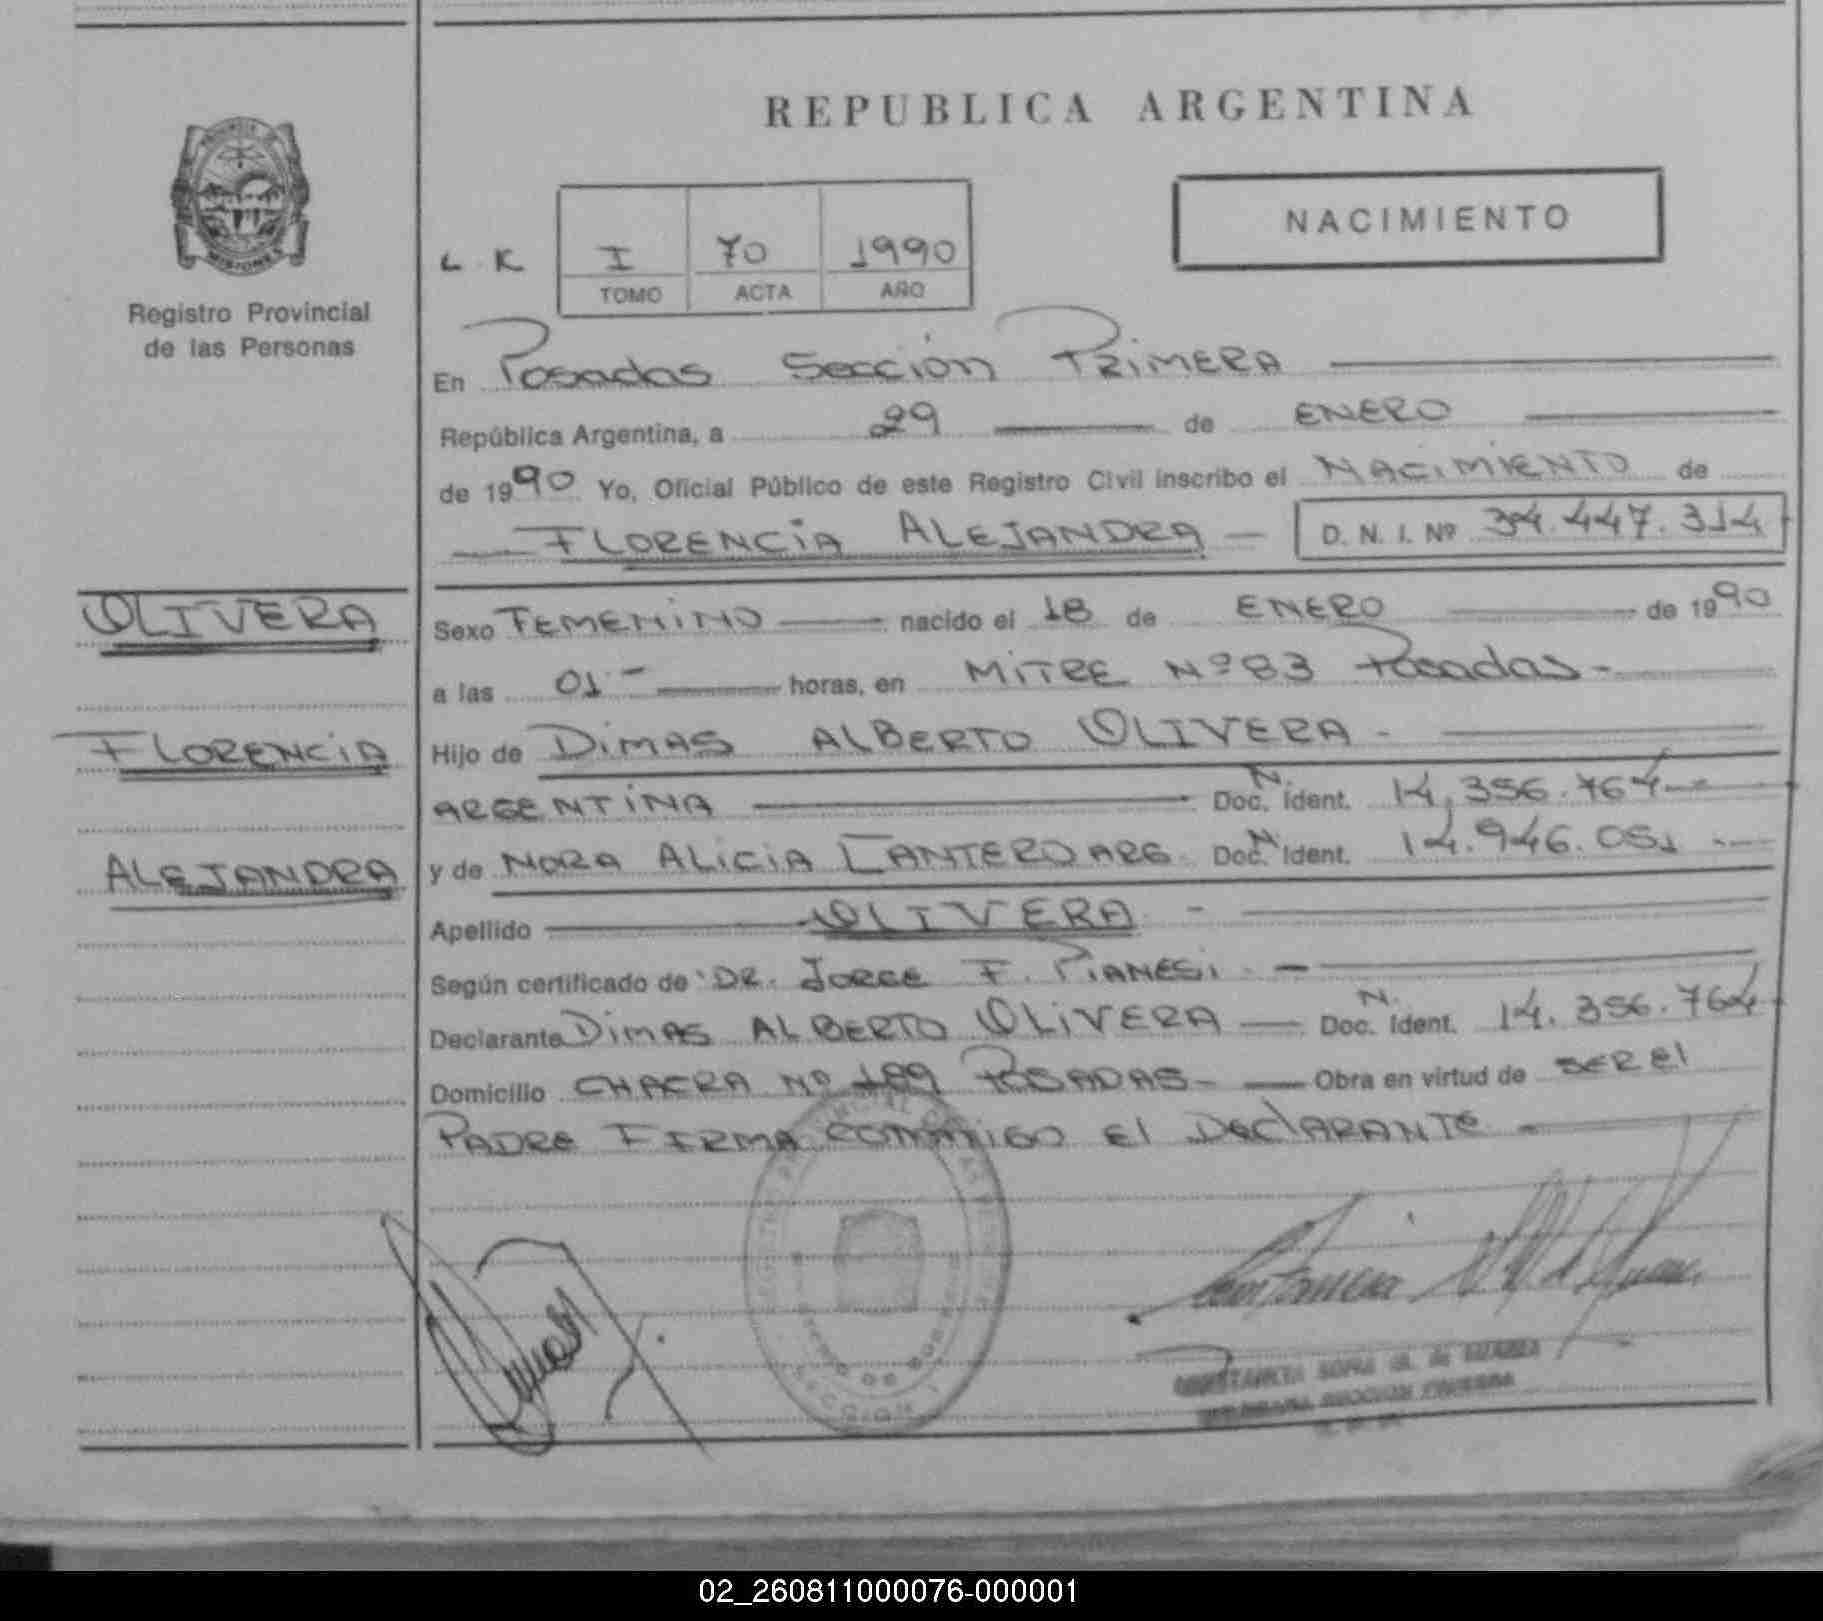 REPUBLICA ARGENTINA
MISIONES
Registro Provincial
de las Personas
NACIMIENTO
L. K
I 70 1990
TOMO ACTA AÑO
En Posadas Sección PRIMERA
República Argentina, a 29 de ENERO
de 1990 Yo, Oficial Público de este Registro Civil inscribo el NACIMIENTO de
FLORENCIA ALEJANDRA D. N. I. Nº 34.447.314
OLIVERA
FLORENCIA
ALEJANDRA
Sexo FEMENINO nacido el 18 de ENERO de 1990
a las 01 horas, en MITRE Nº 83 Posadas-
Hijo de DIMAS ALBERTO OLIVERA -
ARGENTINA D.N. Ident. 14.356.764
y de NORA ALICIA CANTERO ARG D.N. Ident. 14.946.051
Apellido OLIVERA -
Según certificado de DR. JORGE F. PIANESI. -
Declarante DIMAS ALBERTO OLIVERA Doc. N. Ident. 14.356.764
Domicilio CHACRA Nº 189 POSADAS- Obra en virtud de SER El
PADRE FIRMA CONMIGO El DEClARANTE -
SECCION
02_260811000076-000001